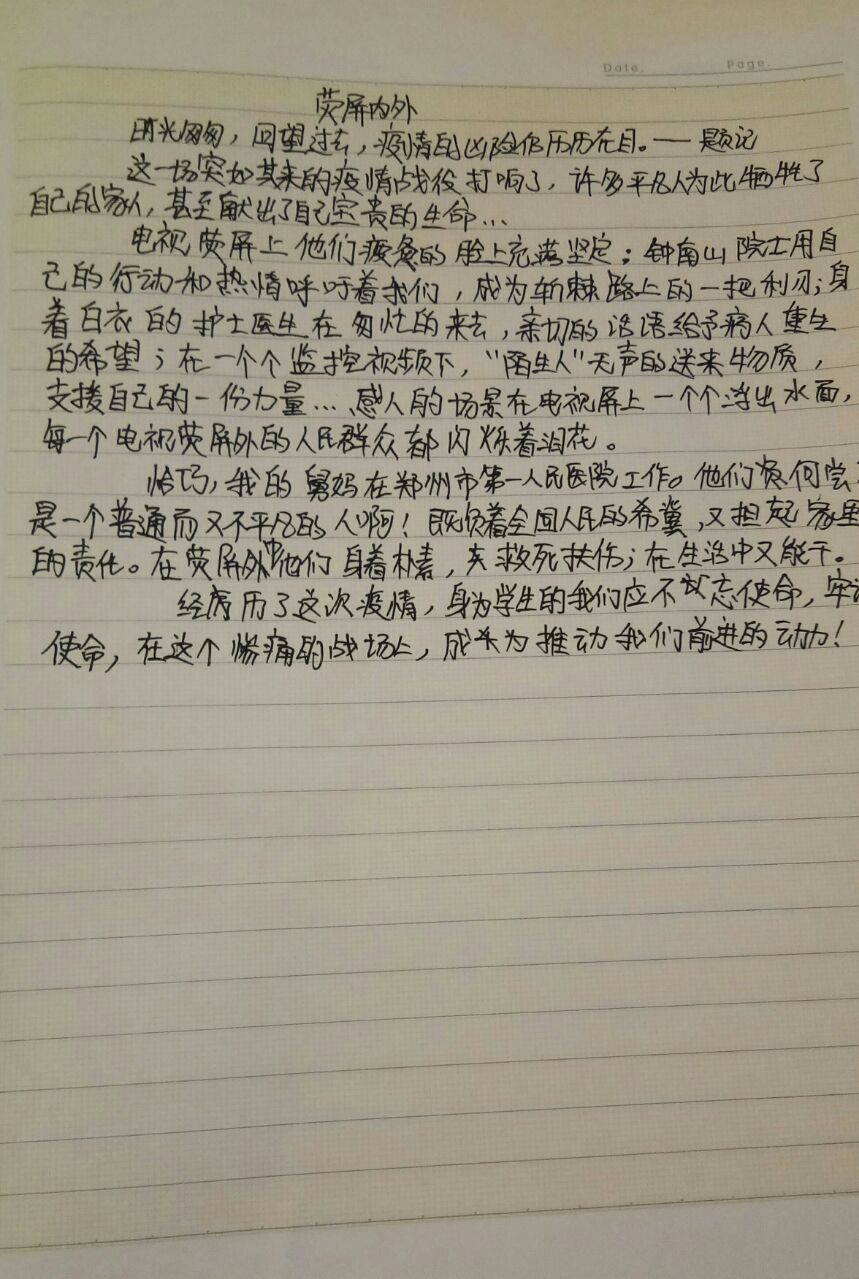 Date.
Page.
荧屏内外
时光匆匆，回望过去，疫情的凶险仍历历在目。——题记
这一场突如其来的疫情战役打响了，许多平凡人为此牺牲了
自己的家人，甚至献出了自己宝贵的生命…
电视荧屏上他们疲惫的脸上充满坚定；钟南山院士用自
己的行动和热情呼吁着我们，成为斩棘路上的一把利刃；身
着白衣的护士医生在匆忙的来去，亲切的话语给予病人重生
的希望；在一个个监控视频下，“陌生人”无声的送来物质，
支援自己的一份力量…感人的场景在电视屏上一个个浮出水面，
每一个电视荧屏外的人民群众都闪烁着泪花。
恰巧，我的舅妈在郑州市第一人民医院工作。他们何尝不
是一个普通而又不平凡的人啊！既负着全国人民的希冀，又担起家里
的责任。在荧屏中他们身着朴素，救死扶伤；在生活中又能干。
经历了这次疫情，身为学生的我们应不忘使命，牢记
使命，在这个惨痛的战场上，成为推动我们前进的动力！